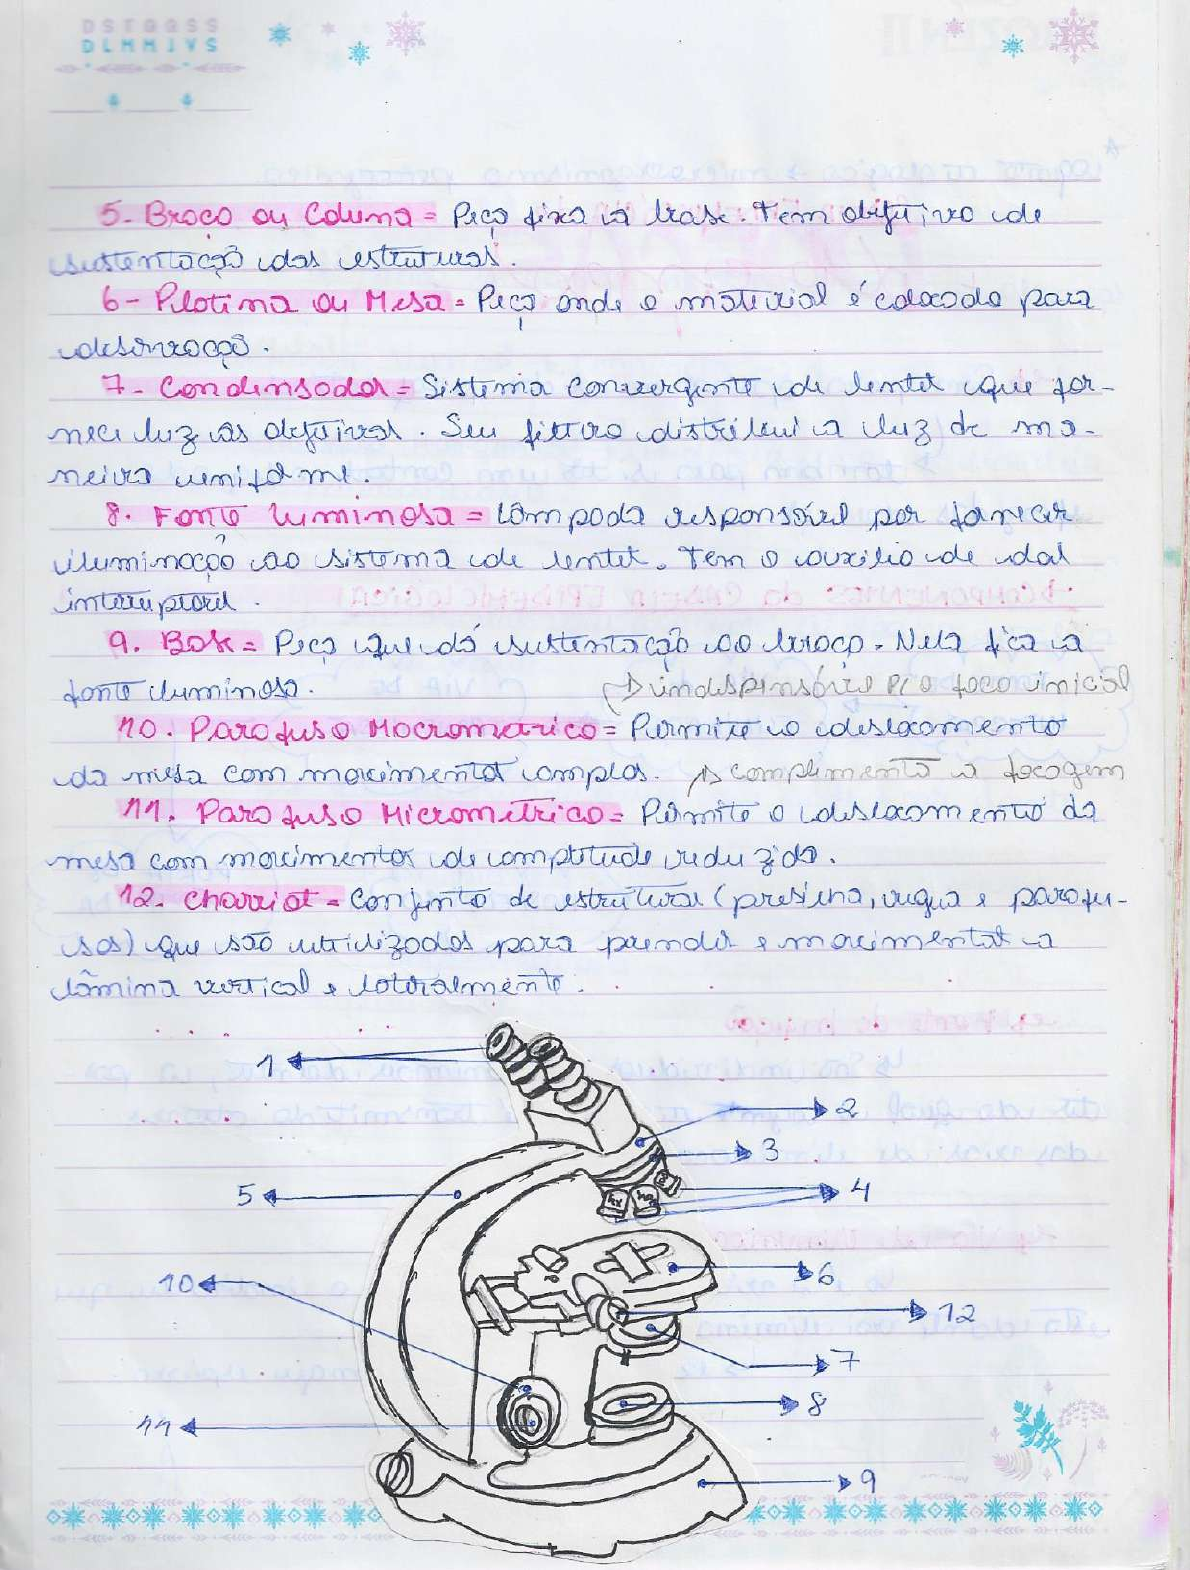 DSTQQSS
DLMMJVS
5- Braço ou Coluna = Peça fixa à base. Tem objetivo de
sustentação das estruturas.
6- Platina ou Mesa = Peça onde o material é colocado para
observação.
7- Condensador = Sistema convergente de lentes que for-
nece luz às objetivas. Seu filtro distribui a luz de ma-
neira uniforme.
8. Fonte Luminosa = Lâmpada responsável por fornecer
iluminação ao sistema de lentes. Tem o auxílio de dal
interruptores.
9. Base = Peça que dá sustentação ao braço. Nela fica a
fonte luminosa. ↳ indispensável p/ o foco inicial
10. Parafuso Macrométrico = Permite o deslocamento
da mesa com movimentos amplos. ↳ complimenta a focagem
11. Parafuso Micrométrico = Permite o deslocamento da
mesa com movimentos de amplitude reduzida.
12. Charriot = Conjunto de estruturas (presilha, régua e parafu-
sos) que são utilizados para prender e movimentar a
lâmina vertical e lateralmente.
1
2
3
5
4
10
6
12
7
8
11
9